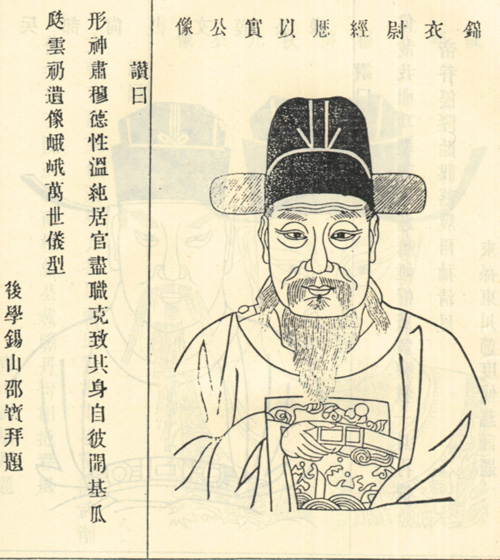 錦衣尉經厯以實公像
讚曰
形神肅穆德性溫純居官盡職克致其身自彼開基瓜
瓞雲礽遺像峨峨萬世儀型
後學錫山邵寳拜題